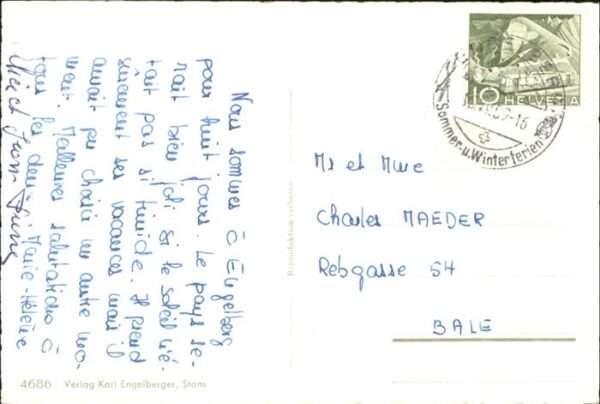 Nous sommes à Engelberg
pour huit jours. Le pays se-
rait bien joli si le soleil n'é-
tait pas si timide. Il prend
sûrement ses vacances mais il
aurait pu choisir un autre mo-
ment. Meilleures salutations à
tous les deux. Marie-Hélène
10 HELVETIA
Sommer-u.Winterferien
Mr et Mme
Charles MAEDER
Rebgasse 54
BALE
Reproduktion verboten
4686 Verlag Karl Engelberger, Stans